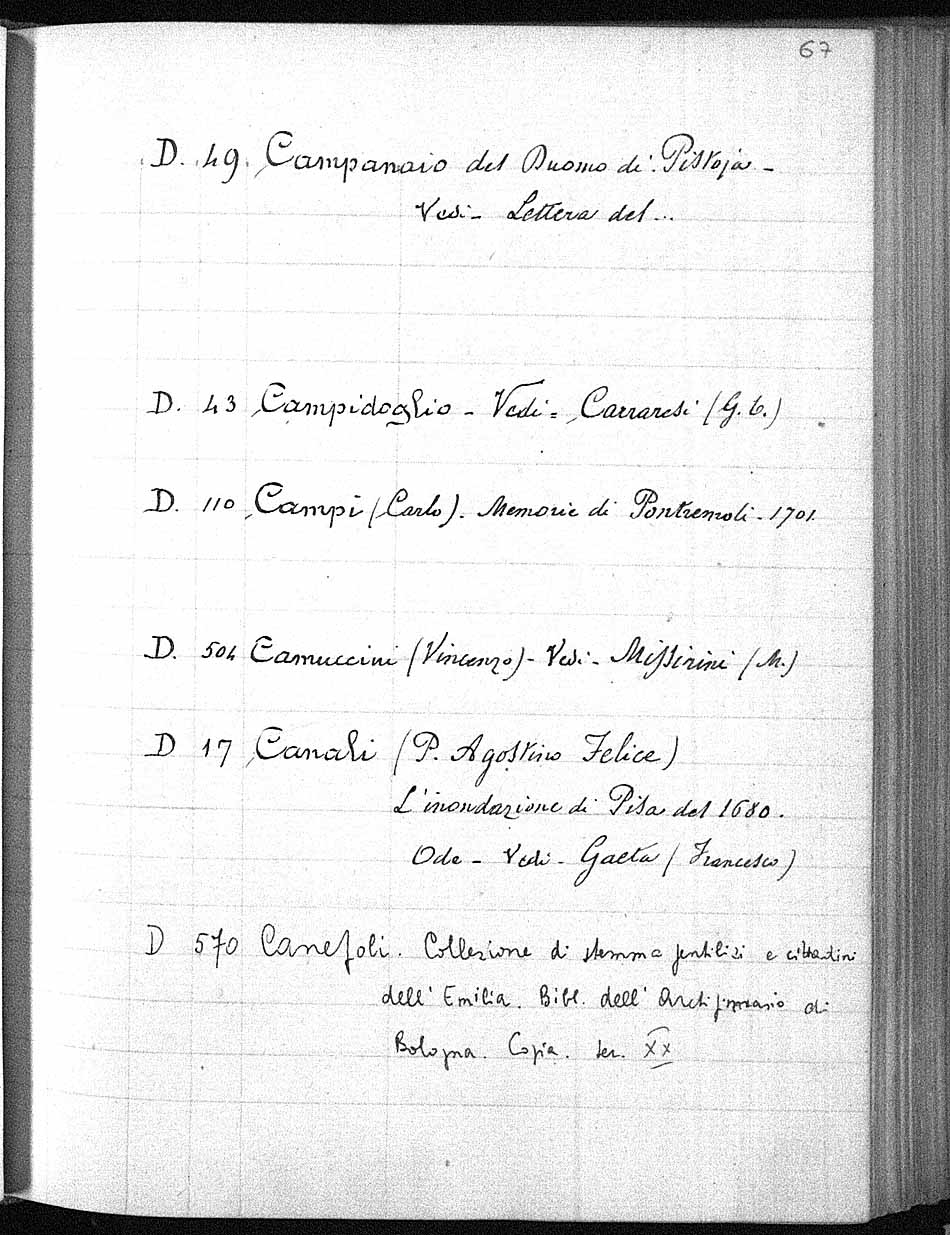 67
D. 49. Campanaio del Duomo di Pistoja -
Vedi - Lettera del...
D. 43 Campidoglio - Vedi = Carraresi (G. C.)
D. 110 Campi (Carlo). Memorie di Pontremoli - 1701.
D. 504 Camuccini (Vincenzo) - Vedi - Missirini (M.)
D 17 Canali (P. Agostino Felice)
L'inondazione di Pisa del 1680.
Ode - Vedi - Gaeta (Francesco)
D 570 Canefoli. Collezione di stemma gentilizi e cittadini
dell' Emilia. Bibl. dell' Archiginnasio di
Bologna. Copia. sec. XX